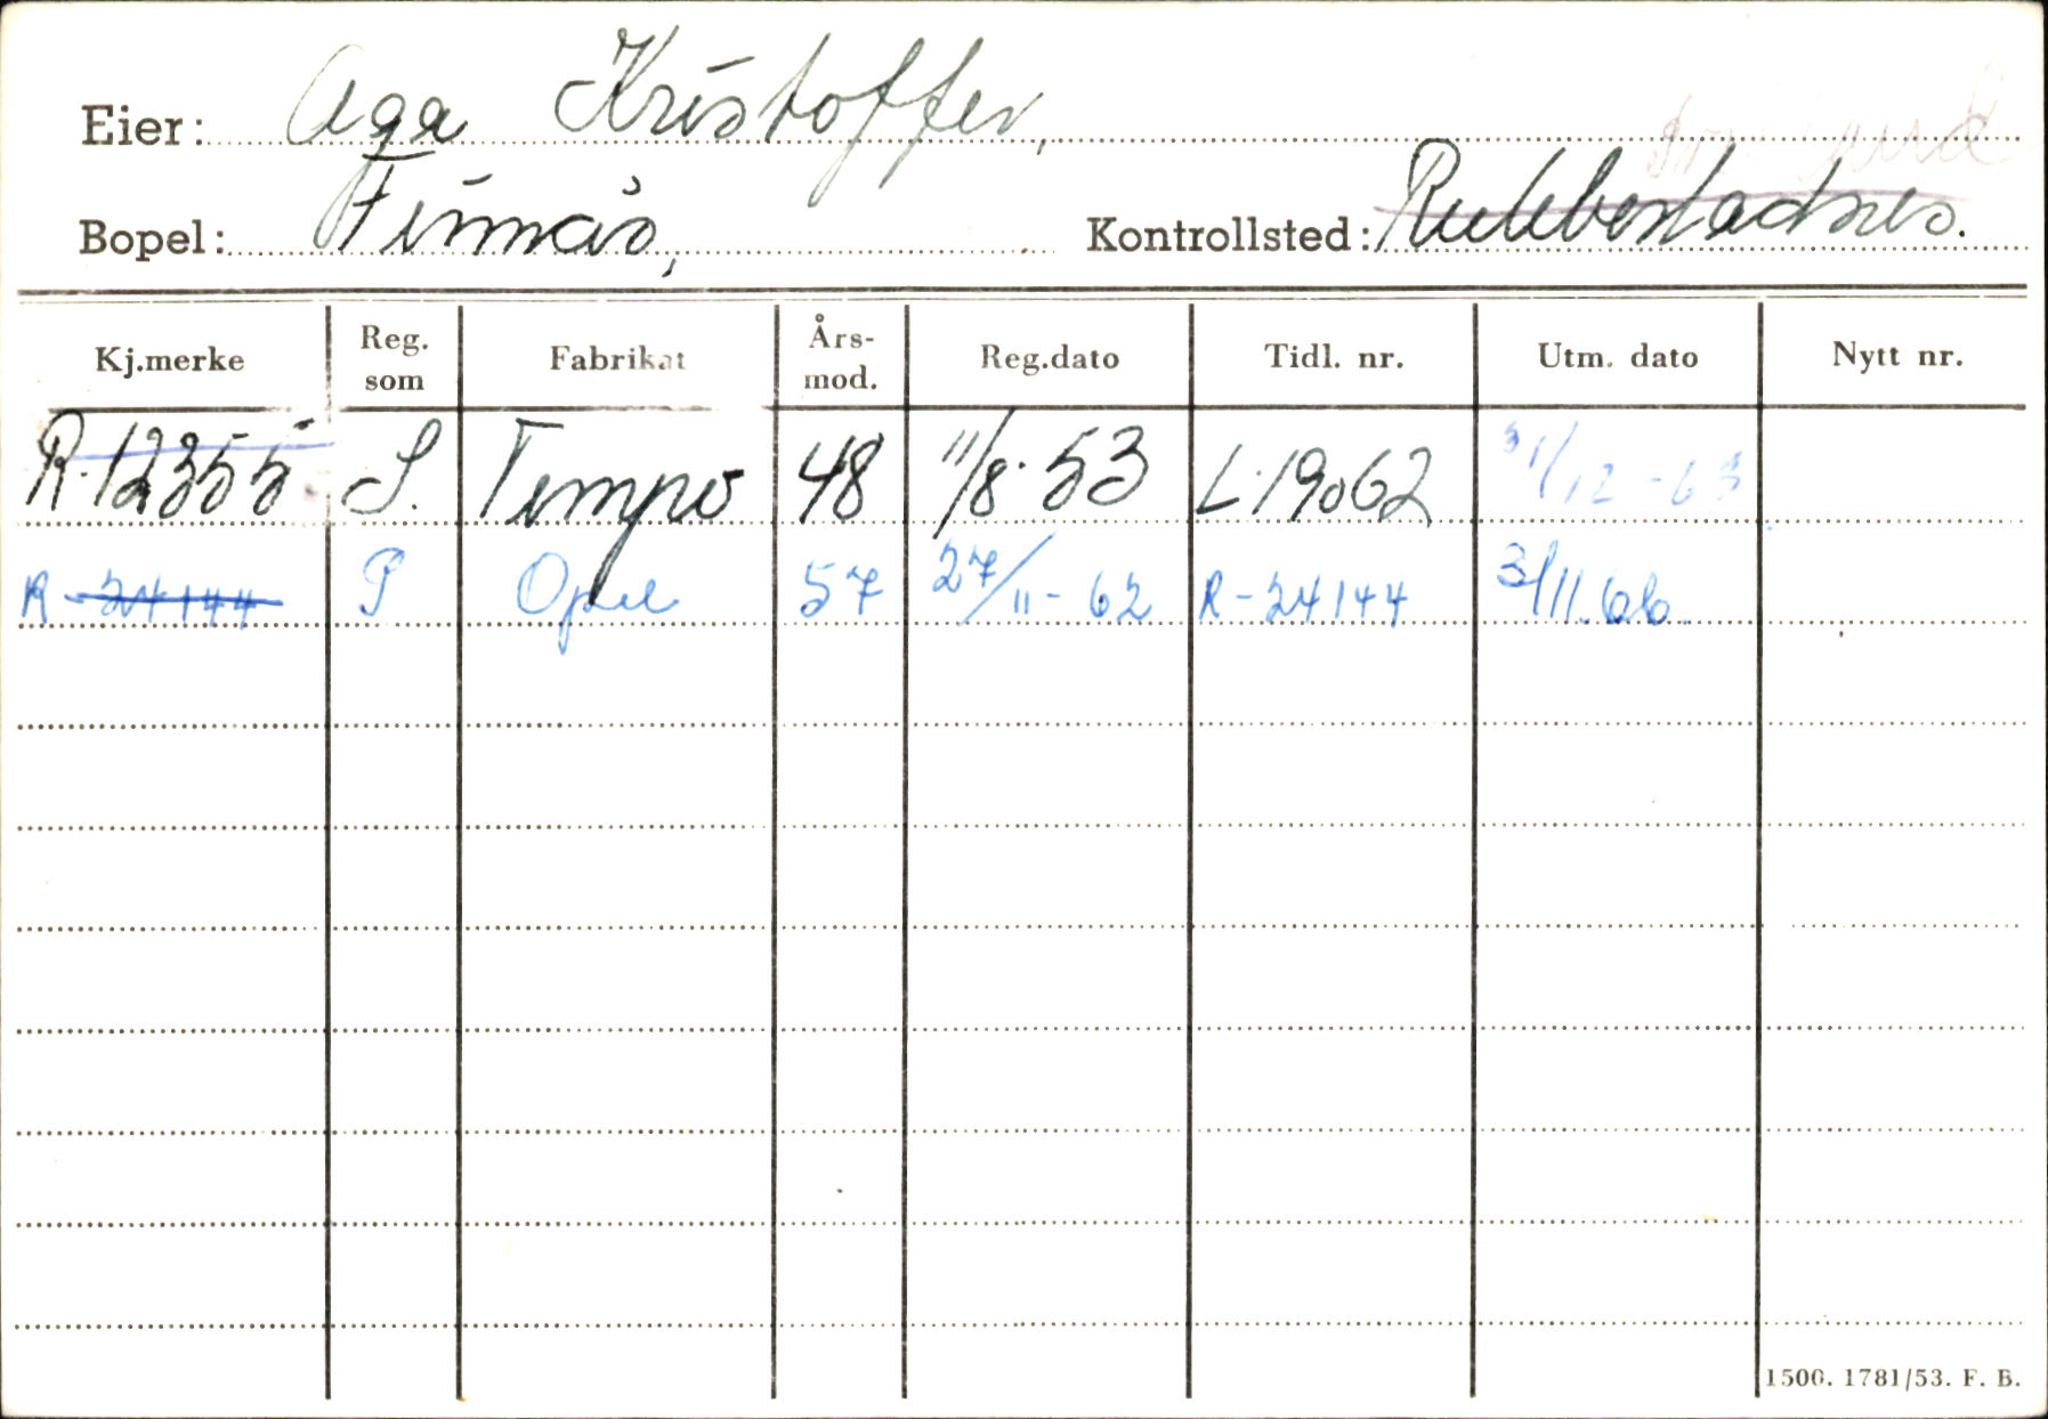 Eier: Aga Kristoffer,
Bopel: Finnås, Kontrollsted: Rubbestadnes.
Kj.merke Reg. som Fabrikat Års- mod. Reg.dato Tidl. nr. Utm. dato Nytt nr.
R-12355 S. Tempo 48 11/8-53 L-19062 31/12-63
R-24144 P Opel 57 27/11-62 R-24144 3/11.66.
1500. 1781/53. F. B.